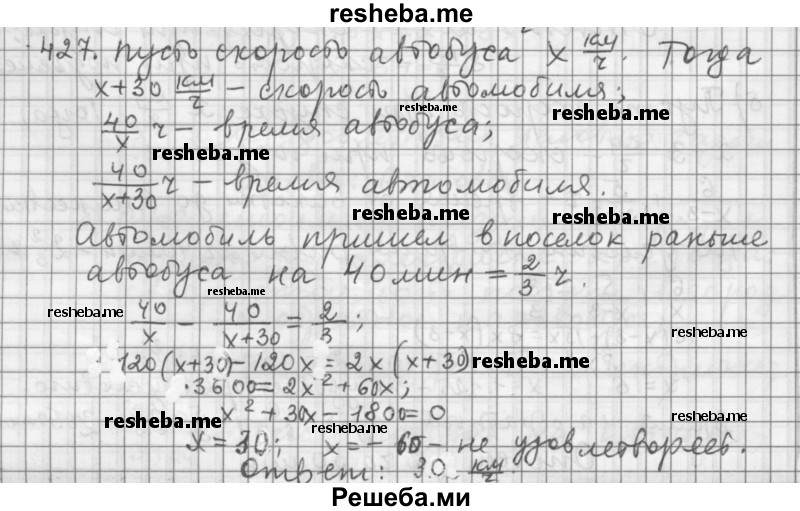 resheba.me
427. Пусть скорость автобуса x км/ч. Тогда
x+30 км/ч – скорость автомобиля;
resheba.me
resheba.me
40/x ч – время автобуса;
resheba.me
40/(x+30) ч – время автомобиля.
resheba.me
resheba.me
Автомобиль пришел в поселок раньше
автобуса на 40 мин = 2/3 ч.
resheba.me
resheba.me
40/x – 40/(x+30) = 2/3;
resheba.me
120(x+30) – 120x = 2x(x+30)
resheba.me
3600 = 2x² + 60x;
x² + 30x – 1800 = 0
resheba.me
resheba.me
resheba.me
x = 30; x = – 60 – не удовлетворяет.
Ответ: 30 км/ч
resheba.me
Решеба.ми